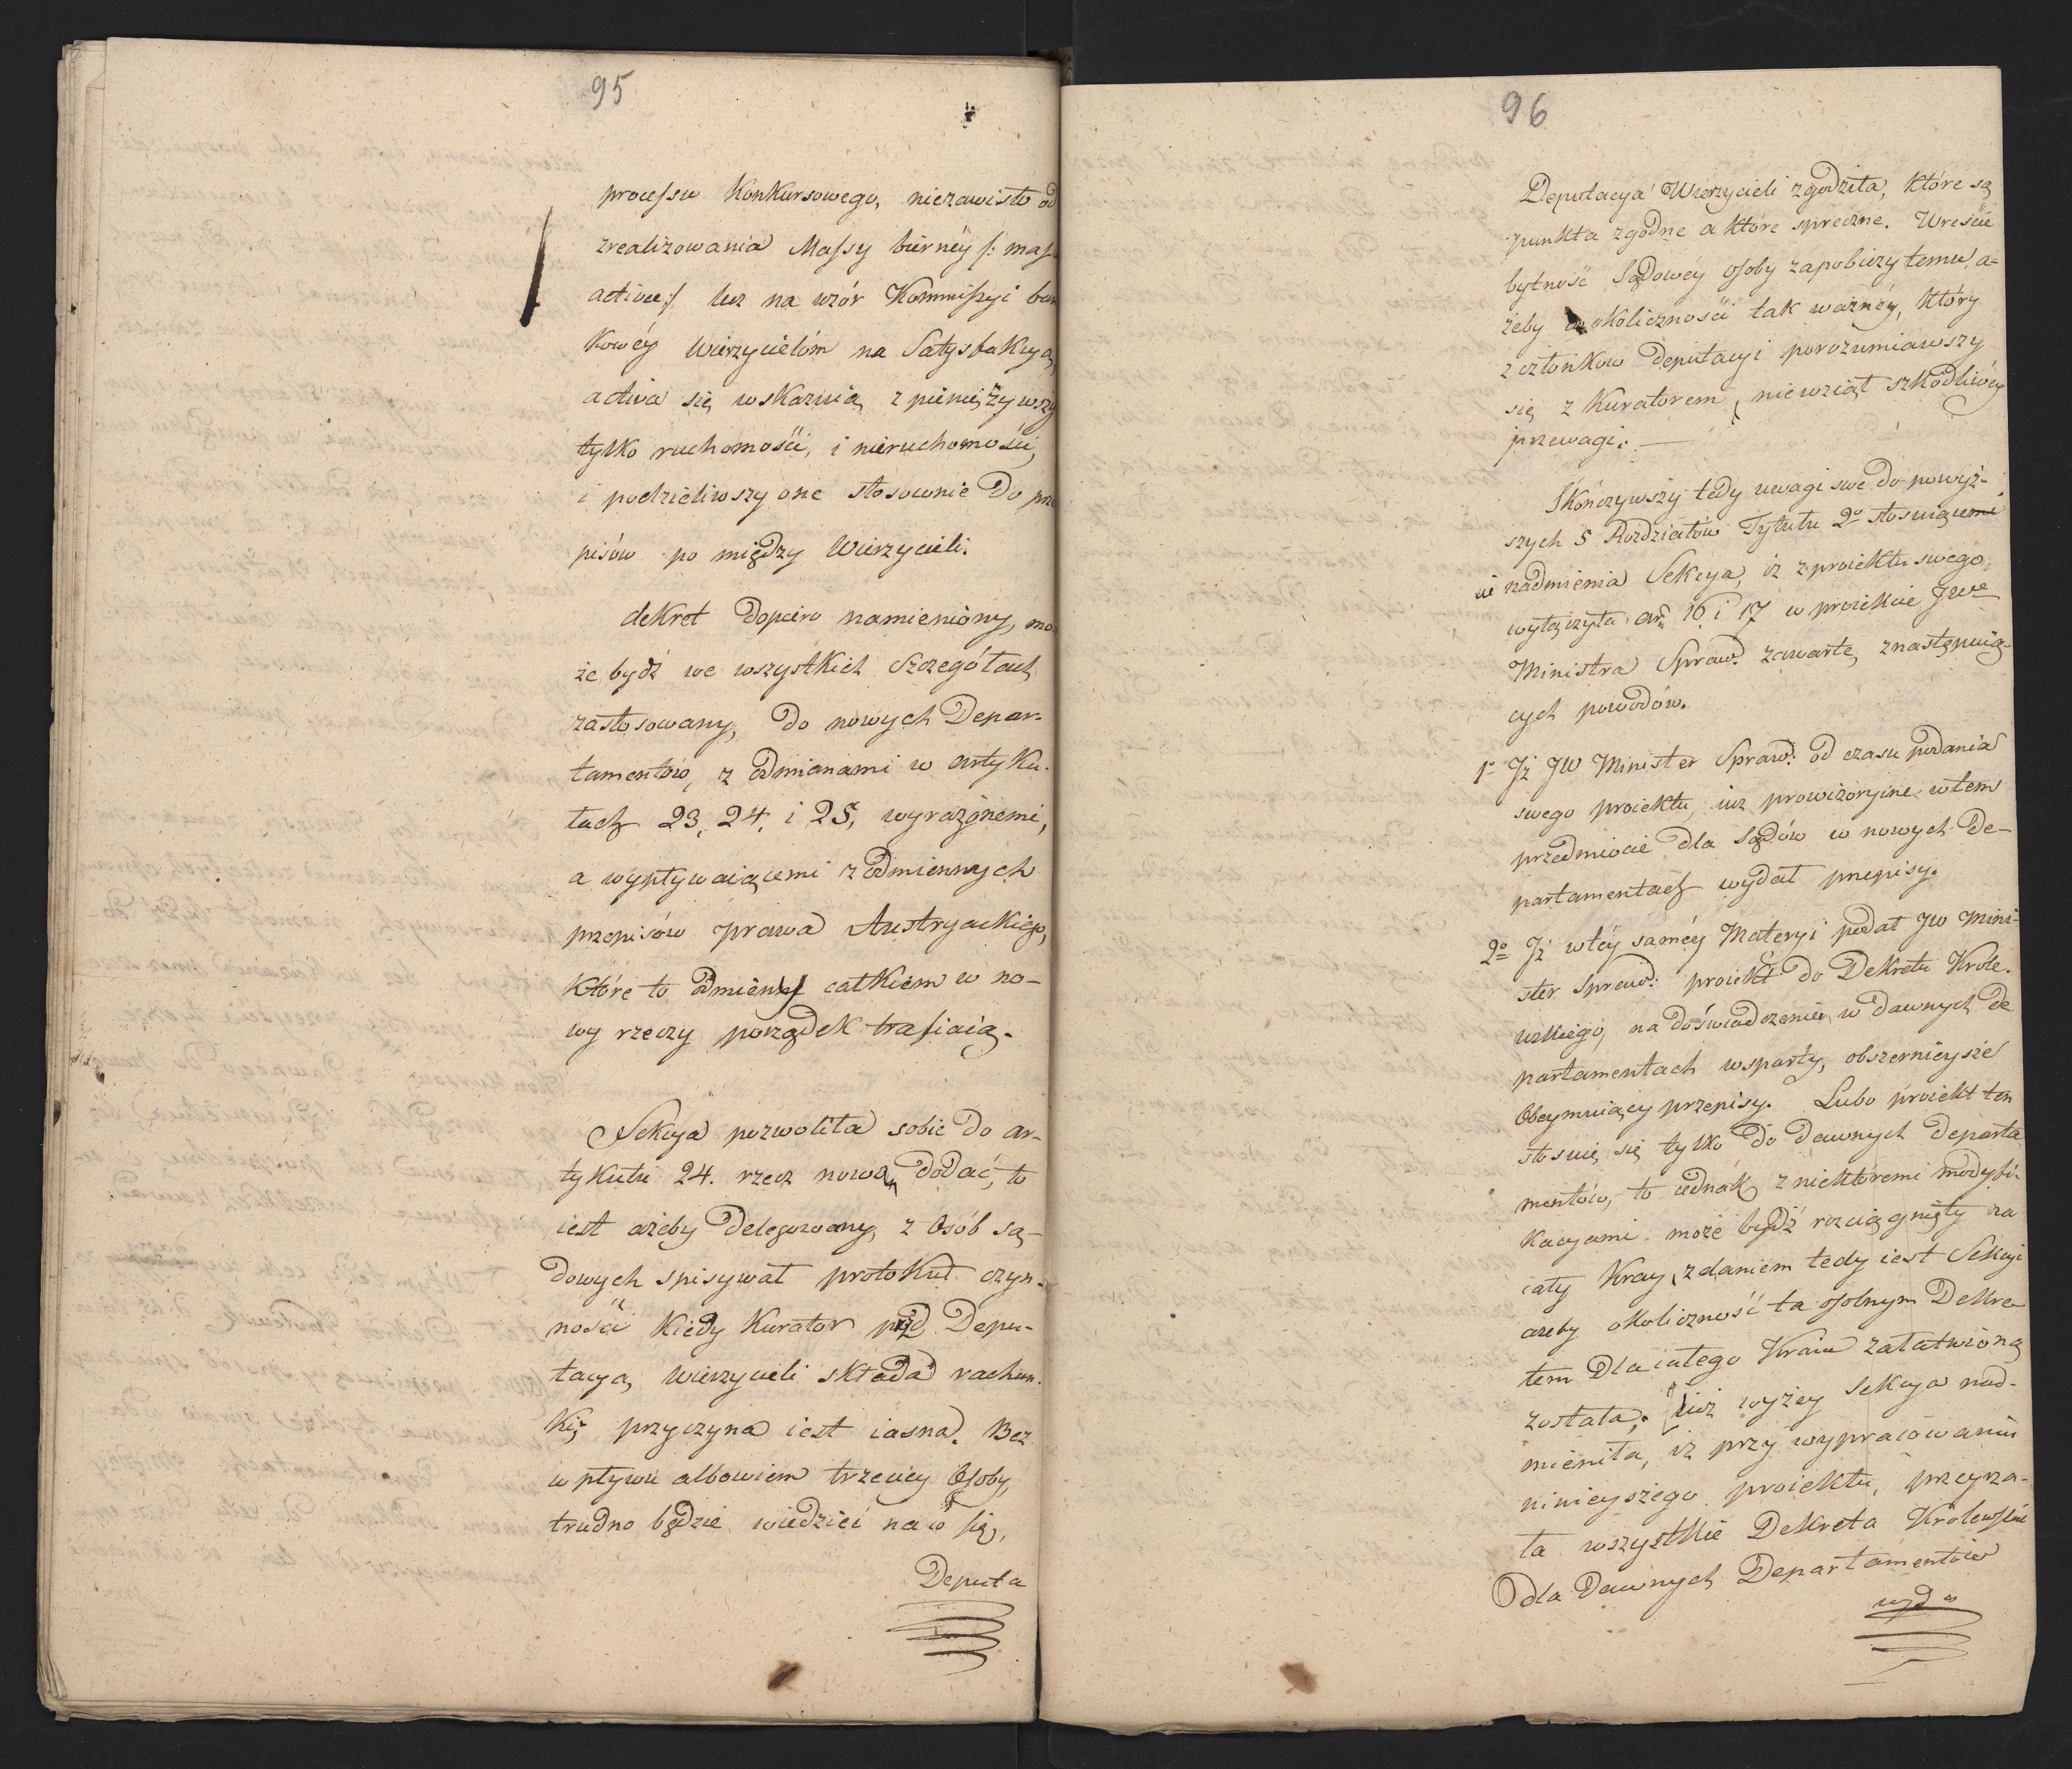 95
processu Konkursowego, niezawisło od
zrealizowania Massy bierney /: massæ
activæ :/ lecz na wzór Kommissyi ban
kowéy Wierzycielóm na Satysfakcyą
activa się wskazuią, zpieniężywszy
tylko ruchomości, i nieruchomości,
i podzieliwszy one stosownie do prze
pisów po między Wierzycieli.
dekret dopiero namieniony, mo-
że bydź we wszystkich Szczegółach
zastosowany, do nowych Depar-
tamentów, z odmianami w artyku-
łach 23, 24, i 25, wyrażonemi,
a wypływaiącemi z odmiennych
przepisów prawa Austryackiego,
które to odmiany całkiem w no-
wy rzeczy porządek trafiaią.
Sekcya pozwoliła sobie do ar-
tykułu 24. rzecz nową dodać, to
iest ażeby Delegowany, z Osób są-
dowych spisywał protokuł czyn-
ności kiedy Kurator przed Depu-
tacyą, wierzycieli składa rachun-
ki, przyczyna iest iasna. Bez
wpływu albowiem trzeciey Osoby,
trudno będzie wiedzieć na co się,
Deputa
96
Deputacya Wierzycieli zgodziła, które są
punkta zgodne a które sprzeczne. Wreście
bytność Sądowéy osoby zapobieży temu, a-
żeby w okoliczności tak ważnéy, który
z członków Deputacyi porozumiawszy
się z Kuratorem, niewziął szkodliwéy
przewagi. —
Skończywszy tedy uwagi swe do powyż-
szych 5 Rozdziałów Tytułu 2º stosuiące
się nadmienia Sekcya, iż z proiektu swego
wyłączyła art 16 i 17 w proiekcie JWe
Ministra Spraw. zawarte, z następuią-
cych powodów.
1º Iż JW Minister Spraw: od czasu podania
swego proiektu, iuż prowizoryine w tem
przedmiocie dla Sądów w nowych De-
partamentach wydał przepisy.
2º Iż w téy saméy Materyi podał JW Mini-
ster Spraw: proiekt do Dekretu Króle-
wskiego, na doświadczeniu w dawnych De
partamentach wsparty, obszernieysze
Obeymuiący przepisy. Lubo proiekt ten
stosuie się tylko do dawnych Departa
mentów, to iednak z niektóremi modyfi-
kacyami może bydź rozciągnięty na
cały Kray, zdaniem tedy iest Sekcyi
ażeby okoliczność ta osobnym Dekre
tem Dla całego Kraiu załatwioną
została; iuż wyżey Sekcya nad-
mieniła, iż przy wypracowaniu
ninieyszego proiektu, przeyrza-
ła wszystkie Dekreta Królewskie
dla Dawnych Departamentów
wyda